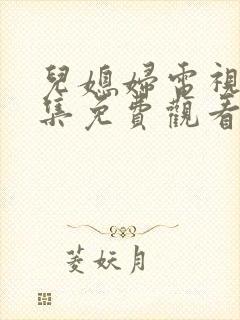 兒媳婦電視
集免費觀看
菱妖月